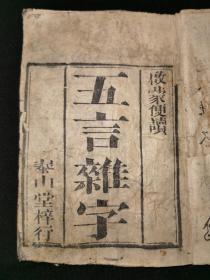 啟蒙便讀
五言雜字
泰山堂梓行